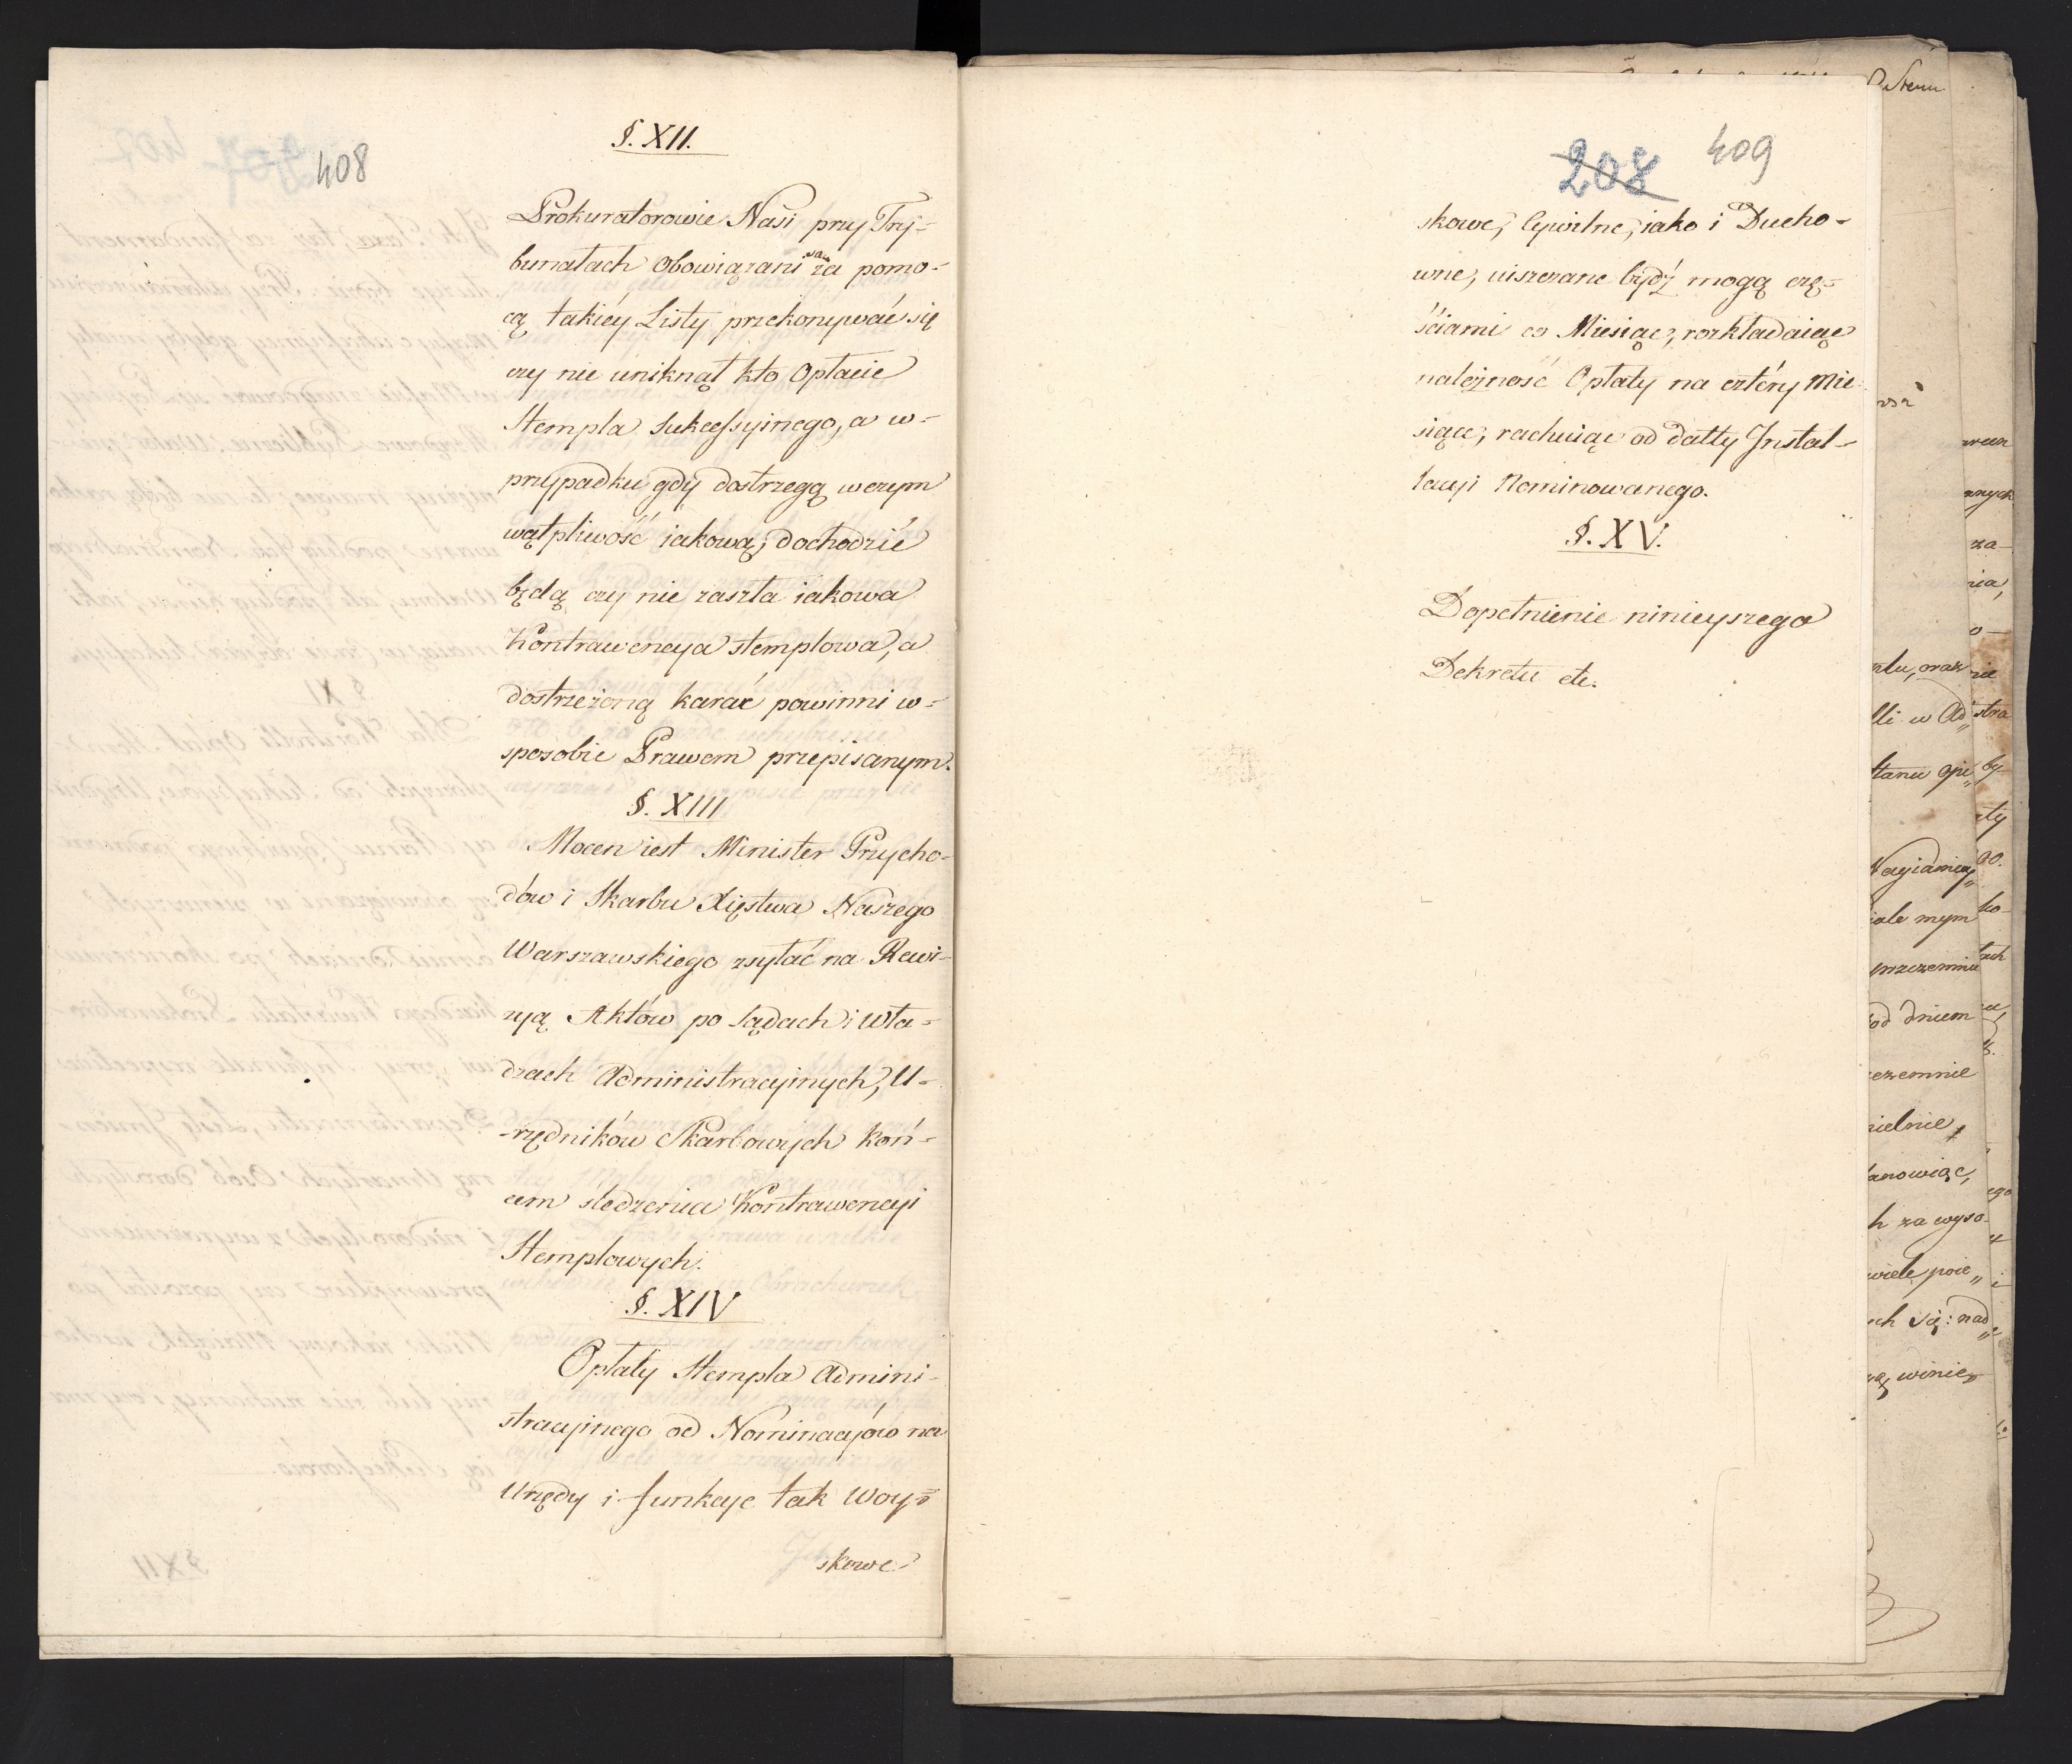 408
§. XII.
Prokuratorowie Nasi przy Try-
bunałach obowiązani są za pomo-
cą takiéy Listy przekonywać się
czy nie uniknął kto Opłacie
Stempla Sukcessyinego, a w-
przypadku gdy dostrzegą w czym
wątpliwość iakową, dochodzić
będą czy nie zaszła iakowa
Kontrawencya stemplowa, a
dostrzeżoną karać powinni w-
sposobie Prawem przepisanym.
§. XIII
Mocen iest Minister Przycho-
dów i Skarbu Xięstwa Naszego
Warszawskiego zsyłać na Rewi-
zyą Aktów po Sądach i Wła-
dzach Administracyinych, U-
rzędników Skarbowych koń-
cem śledzenia Kontrawencyi
Stemplowych.
§. XIV
Opłaty Stempla Admini-
stracyinego od Nominacyów na
Urzędy i funkcye tak Woy-
skowe
208 409
skowe, Cywilne, iako i Ducho-
wne, uiszczane bydź mogą czę-
ściami co Miesiąc, rozkładaiąc
należność Opłaty na cztéry Mie
siące, rachuiąc od datty Instal-
lacyi Nominowanego.
§. XV.
Dopełnienie ninieyszego
Dekretu etc.